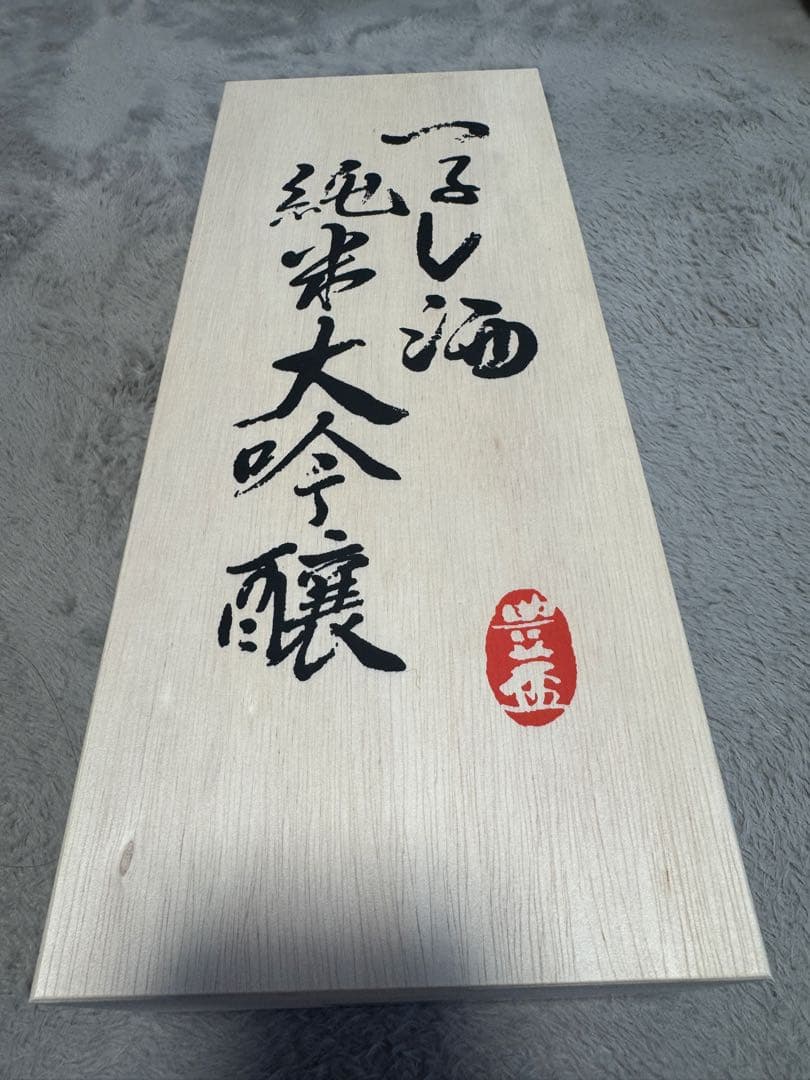 つるし酒
純米大吟醸
豊盃